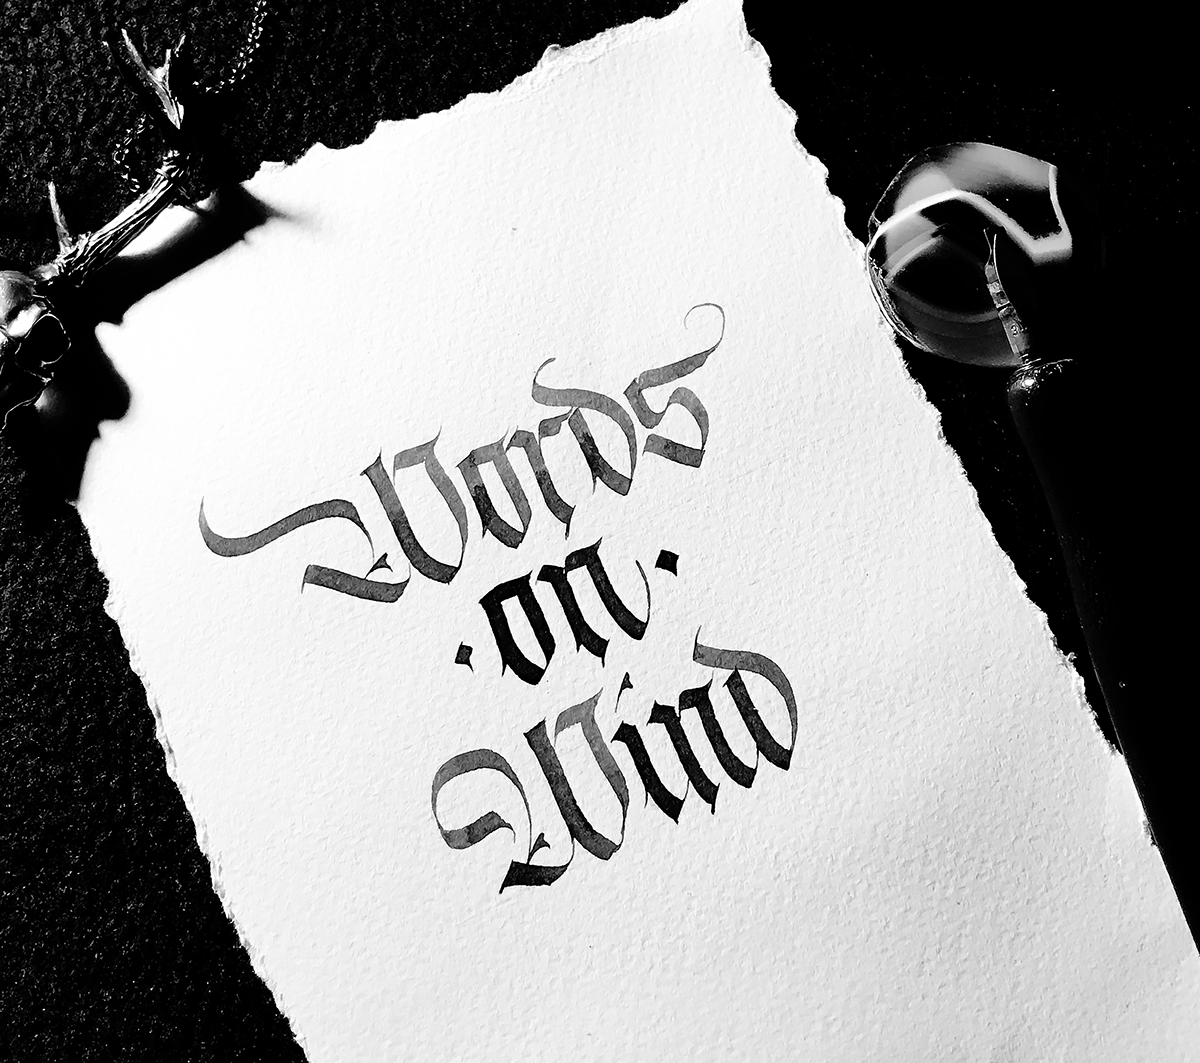 Words
·on·
Wind